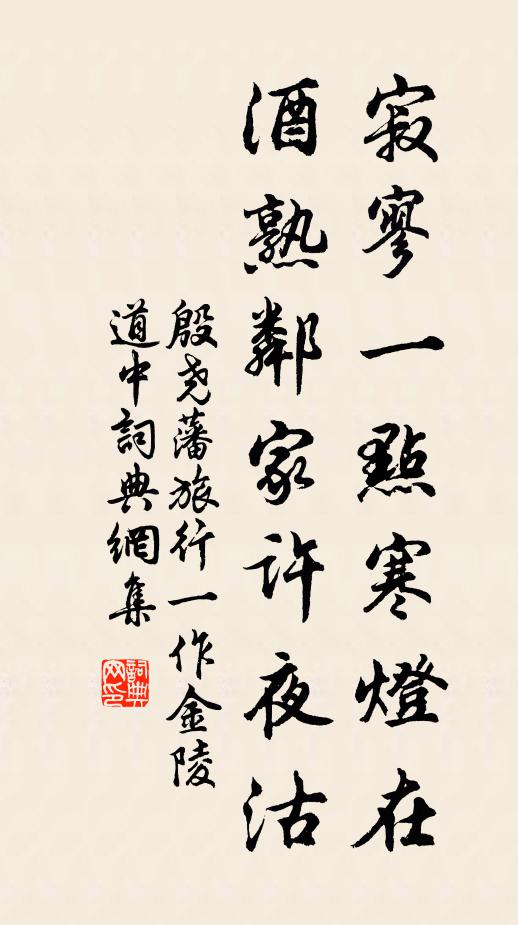 寂寥一點寒燈在
酒熟鄰家許夜沽
殷尧藩旅行一作金陵
道中詞典網集
詞典网印